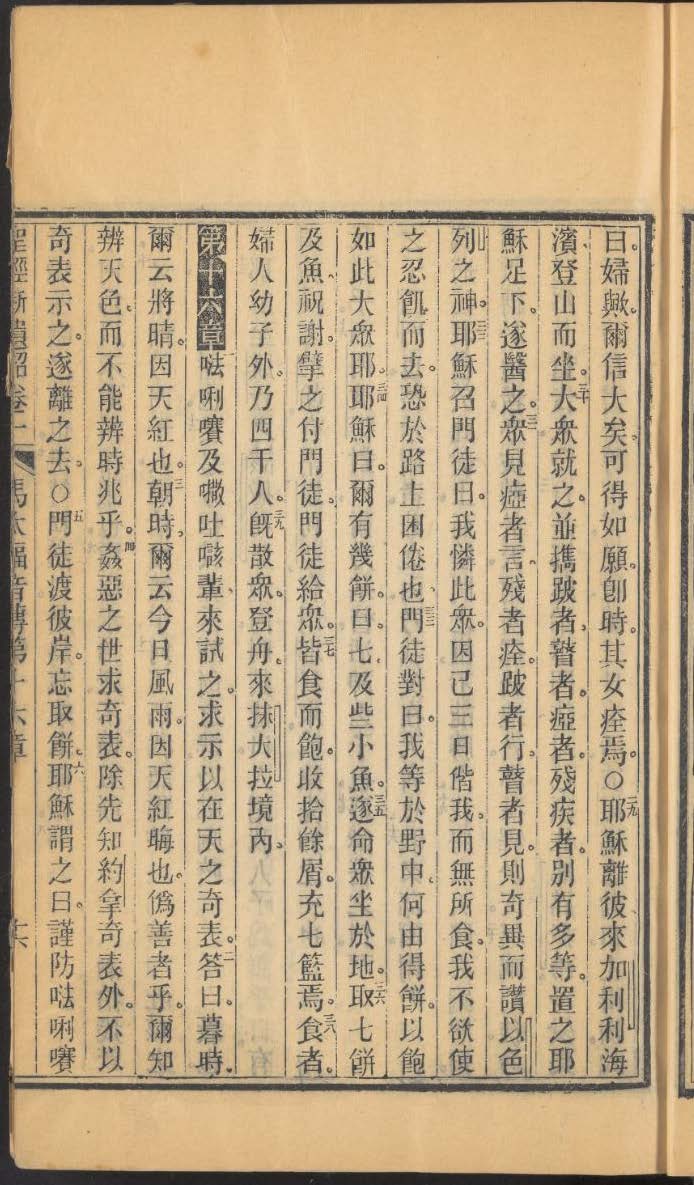 曰婦歟爾信大矣可得如願卽時其女痊焉○二九耶穌離彼來加利利海
濱登山而坐三十大衆就之並攜跛者瞽者瘂者殘疾者別有多等置之耶
穌足下遂醫之三一衆見瘂者言殘者痊跛者行瞽者見則奇異而讚以色
列之神三二耶穌召門徒曰我憐此衆因已三日偕我而無所食我不欲使
之忍飢而去恐於路上困倦也三三門徒對曰我等於野中何由得餅以飽
如此大衆耶三四耶穌曰爾有幾餅曰七及些小魚三五遂命衆坐於地三六取七餅
及魚祝謝擘之付門徒門徒給衆三七皆食而飽收拾餘屑充七籃焉三八食者
婦人幼子外乃四千人三九旣散衆登舟來抹大拉境內
第十六章一㕸唎㘔及㘚吐㗒輩來試之求示以在天之奇表二答曰暮時
爾云將晴因天紅也三朝時爾云今日風雨因天紅晦也僞善者乎爾知
辨天色而不能辨時兆乎四姦惡之世求奇表除先知約拿奇表外不以
奇表示之遂離之去○五門徒渡彼岸忘取餅六耶穌謂之曰謹防㕸唎㘔
聖經新遺詔卷一 馬太福音傳第十六章